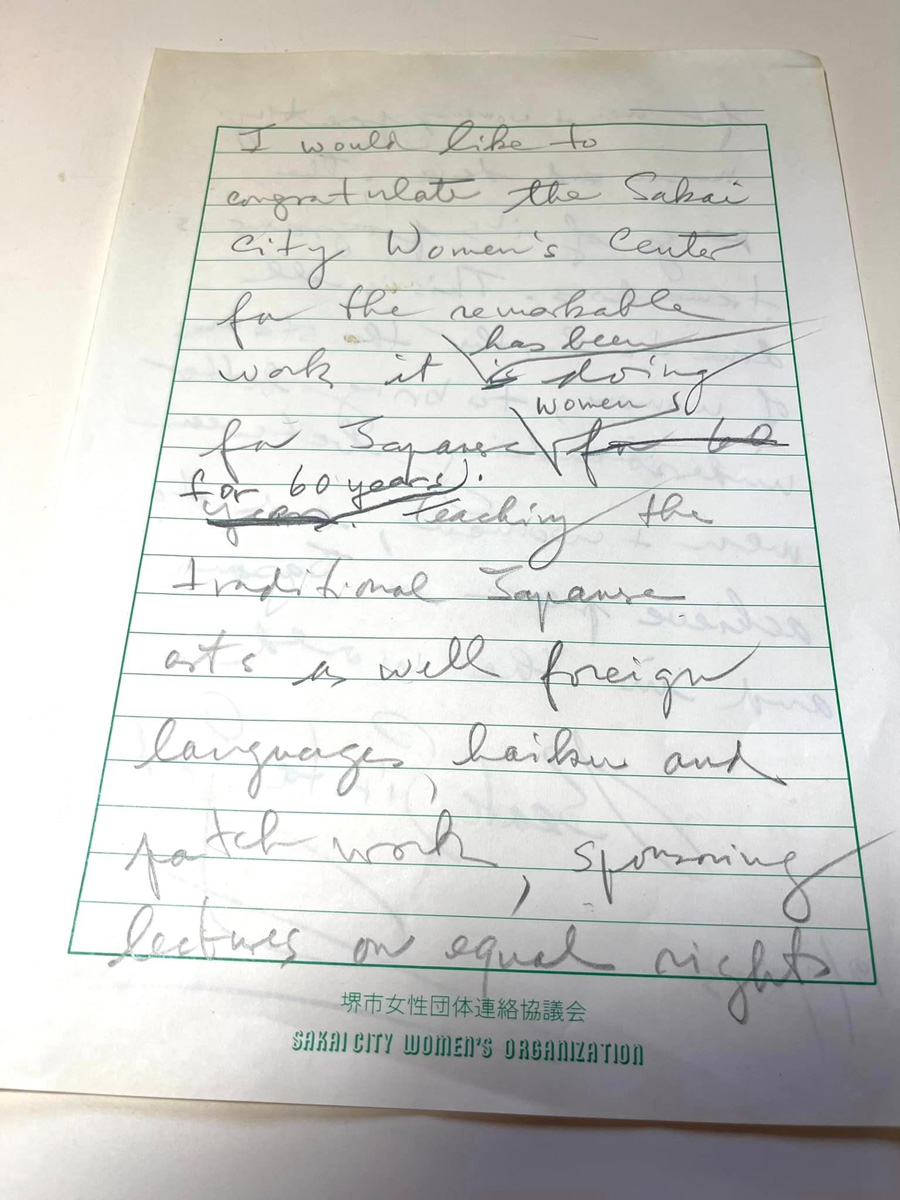 I would like to
congratulate the Sakai
City Women's Center
for the remarkable
has been
work it is doing
women
for Japanese for 60
for 60 years.
years. Teaching the
traditional Japanese
arts as well foreign
languages, haiku and
patch work, sponsoring
lectures on equal rights
堺市女性団体連絡協議会
SAKAI CITY WOMEN'S ORGANIZATION